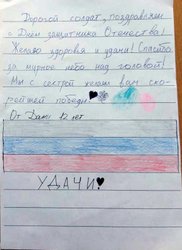 Дорогой солдат, поздравляем
с Днём защитника Отечества!
Желаю здоровья и удачи! Спасибо
за мирное небо над головой!
Мы с сестрой желаем вам ско-
рейшей победы!
От Даши 12 лет
УДАЧИ!